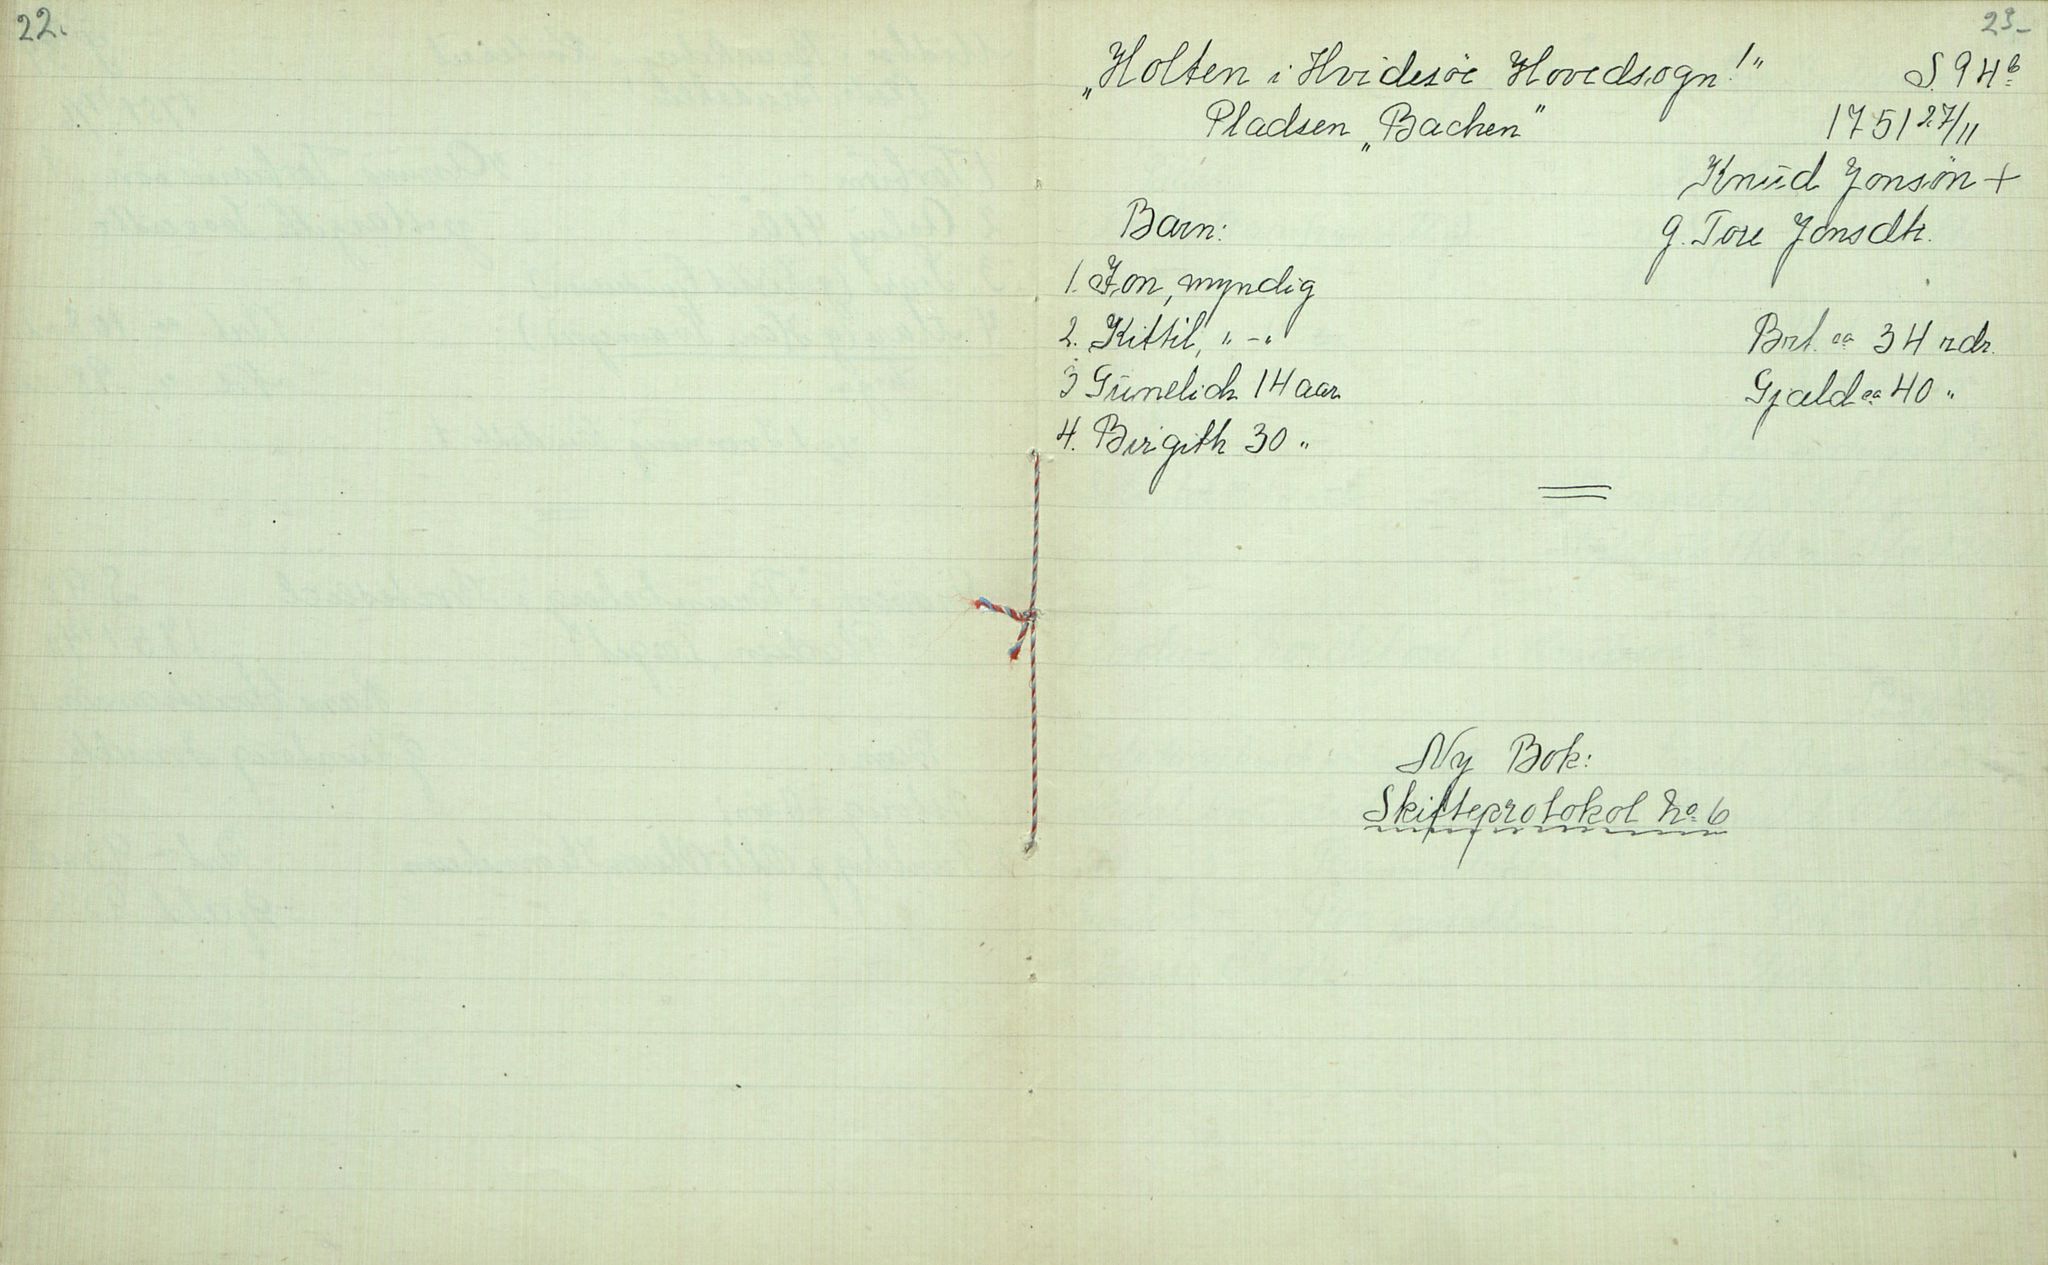 22.
23-
„Holten i Hvidesöe Hovedsogn!" S. 94 b
Pladsen „Bachen" 1751 27/11
Knud Jonsön +
Barn: g. Tore Jonsdtr.
1. Jon, myndig
2. Kittil, " - " Brt. ca 34 rdr.
3 Gunelich 14 aar Gjæld ca 40 "
4. Birgith 30 "
Ny Bok:
Skifteprotokol No. 6